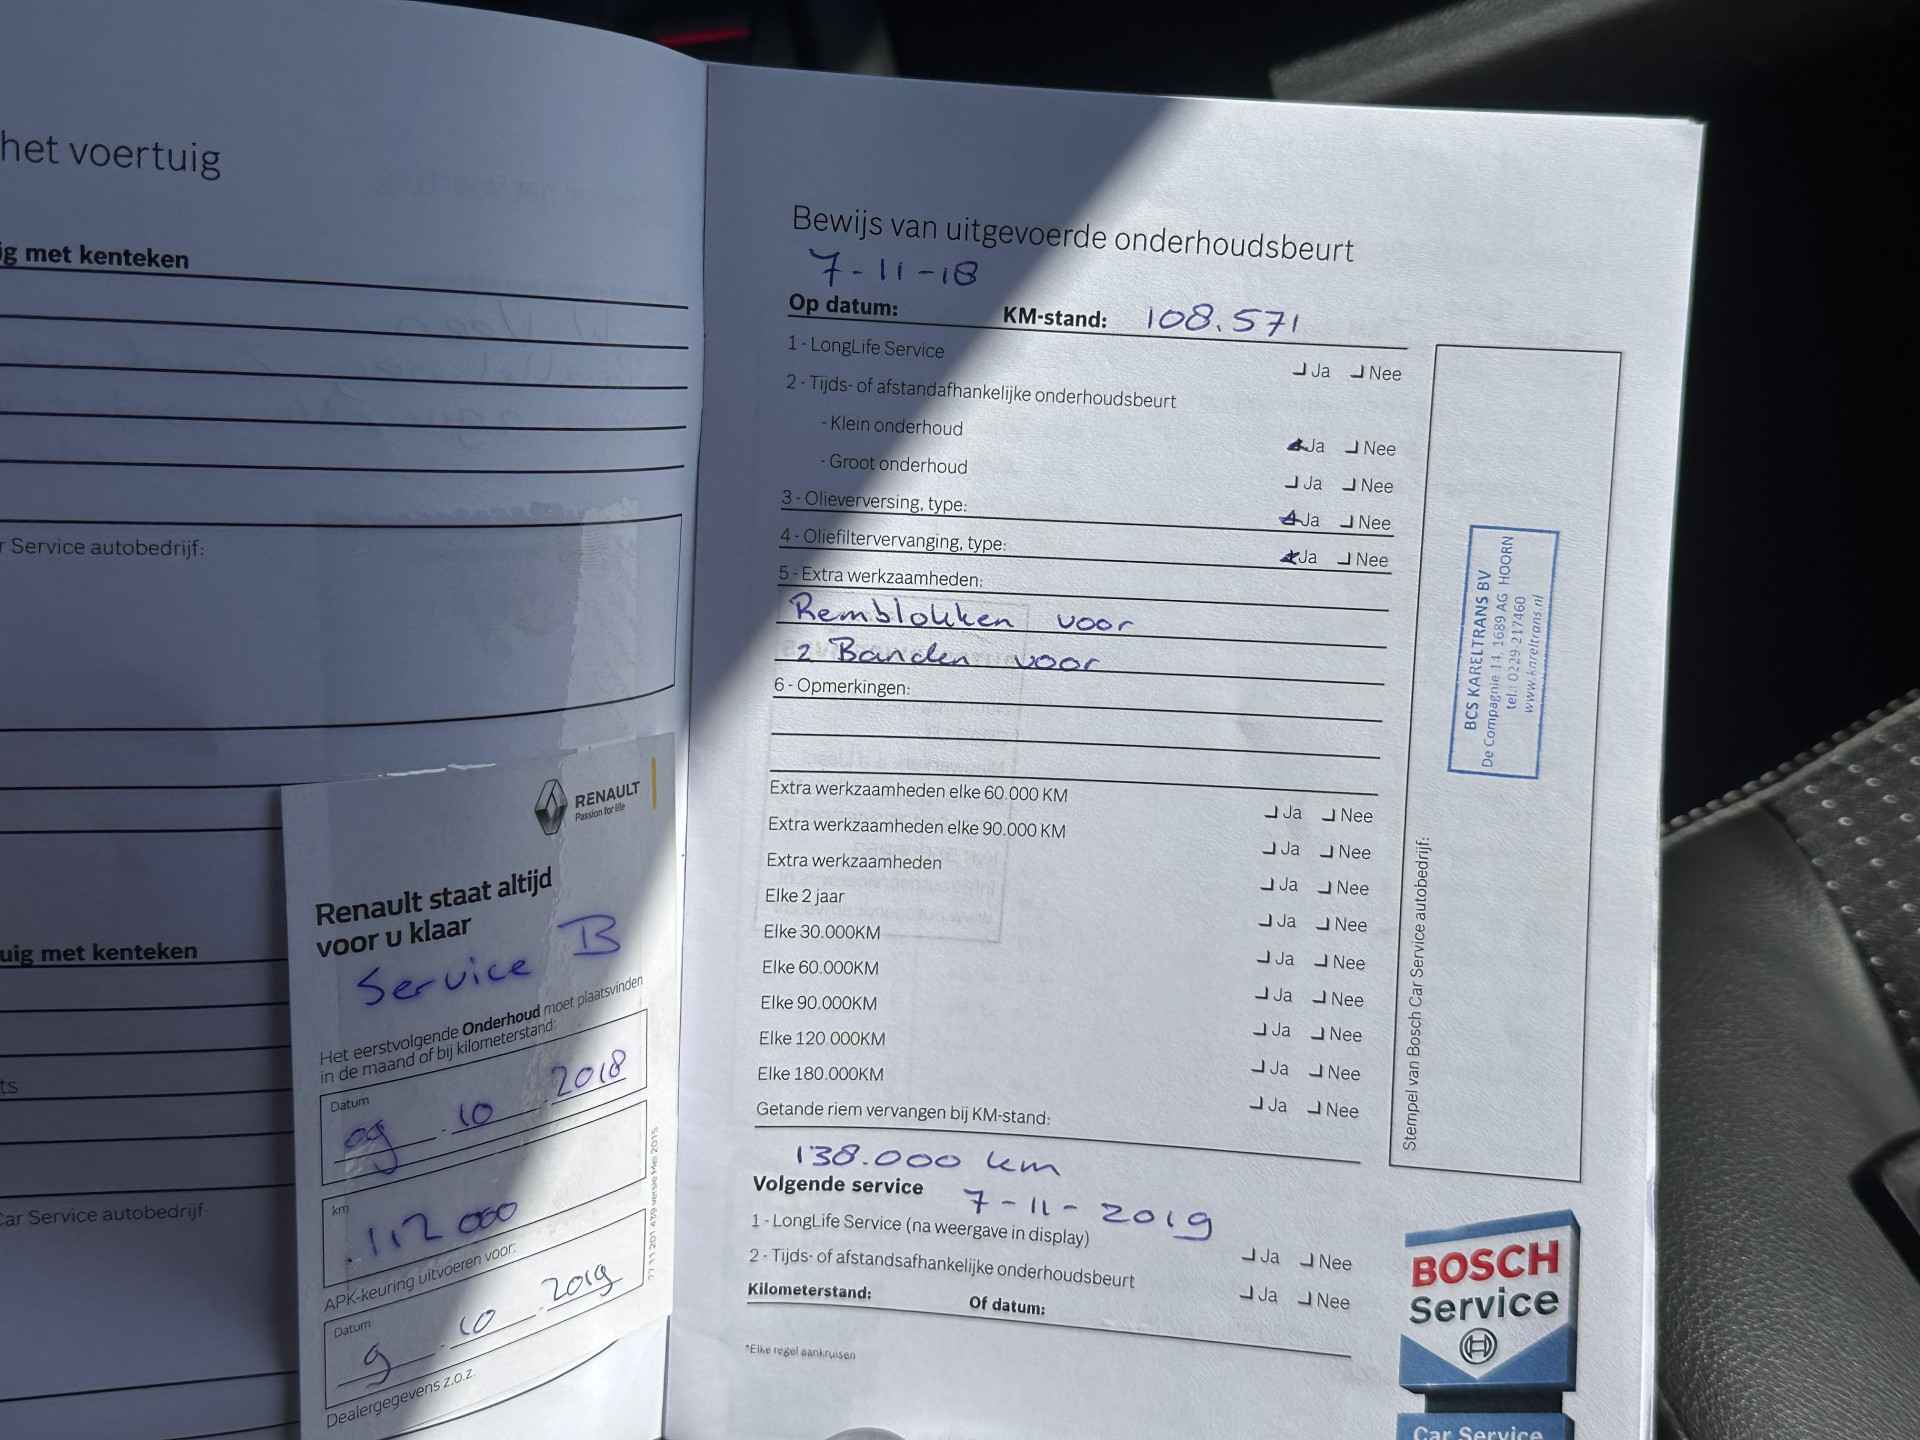 het voertuig
ig met kenteken
r Service autobedrijf:
uig met kenteken
ts
Car Service autobedrijf
RENAULT
Passion for life
Renault staat altijd
voor u klaar
Service B
Het eerstvolgende Onderhoud moet plaatsvinden
in de maand of bij kilometerstand:
Datum
09 . 10 . 2018
km
112 000
APK-keuring uitvoeren voor:
Datum
9 . 10 . 2019
Dealergegevens z.o.z.
77 11 201 439 versie Mei 2015
Bewijs van uitgevoerde onderhoudsbeurt
7-11-18
Op datum: KM-stand: 108.571
1 - LongLife Service Ja Nee
2 - Tijds- of afstandafhankelijke onderhoudsbeurt
- Klein onderhoud Ja Nee
- Groot onderhoud Ja Nee
3 - Olieverversing, type: Ja Nee
4 - Oliefiltervervanging, type: Ja Nee
5 - Extra werkzaamheden:
Remblokken voor
2 Banden voor
6 - Opmerkingen:
Extra werkzaamheden elke 60.000 KM Ja Nee
Extra werkzaamheden elke 90.000 KM Ja Nee
Extra werkzaamheden Ja Nee
Elke 2 jaar Ja Nee
Elke 30.000KM Ja Nee
Elke 60.000KM Ja Nee
Elke 90.000KM Ja Nee
Elke 120.000KM Ja Nee
Elke 180.000KM Ja Nee
Getande riem vervangen bij KM-stand:
138.000 km
Volgende service 7-11-2019
1 - LongLife Service (na weergave in display) Ja Nee
2 - Tijds- of afstandsafhankelijke onderhoudsbeurt Ja Nee
Kilometerstand: Of datum:
*Elke regel aankruisen
BCS KARELTRANS BV
De Compagnie 14, 1689 AG HOORN
tel.: 0229 217460
www.kareltrans.nl
Stempel van Bosch Car Service autobedrijf:
BOSCH
Service
Car Service